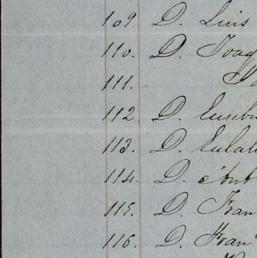 109. D. Luis
110. D. Joaq
111.
112. D. Euseb
113. D. Eulal
114. D.
115. D. Fran
116. D. Fran